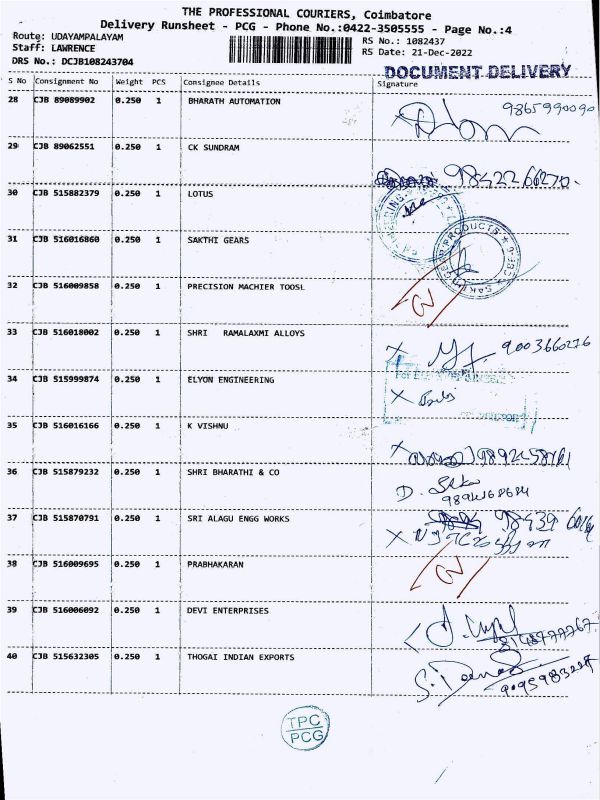 THE PROFESSIONAL COURIERS, Coimbatore
Delivery Runsheet - PCG - Phone No.:0422-3505555 - Page No.:4
Route: UDAYAMPALAYAM
RS No.: 1082437
Staff: LAWRENCE
RS Date: 21-Dec-2022
DRS No.: DCJB108243704
DOCUMENT DELIVERY
S No Consignment No Weight PCS Consignee Details Signature
28 CJB 89089902 0.250 1 BHARATH AUTOMATION 9865990090
29 CJB 89062551 0.250 1 CK SUNDRAM
30 CJB 515882379 0.250 1 LOTUS
31 CJB 516016860 0.250 1 SAKTHI GEARS
32 CJB 516009858 0.250 1 PRECISION MACHIER TOOSL
33 CJB 516018002 0.250 1 SHRI RAMALAXMI ALLOYS 9003660276
34 CJB 515999874 0.250 1 ELYON ENGINEERING
35 CJB 516016166 0.250 1 K VISHNU
36 CJB 515879232 0.250 1 SHRI BHARATHI & CO
37 CJB 515870791 0.250 1 SRI ALAGU ENGG WORKS
38 CJB 516009695 0.250 1 PRABHAKARAN
39 CJB 516006092 0.250 1 DEVI ENTERPRISES
40 CJB 515632305 0.250 1 THOGAI INDIAN EXPORTS
TPC
PCG